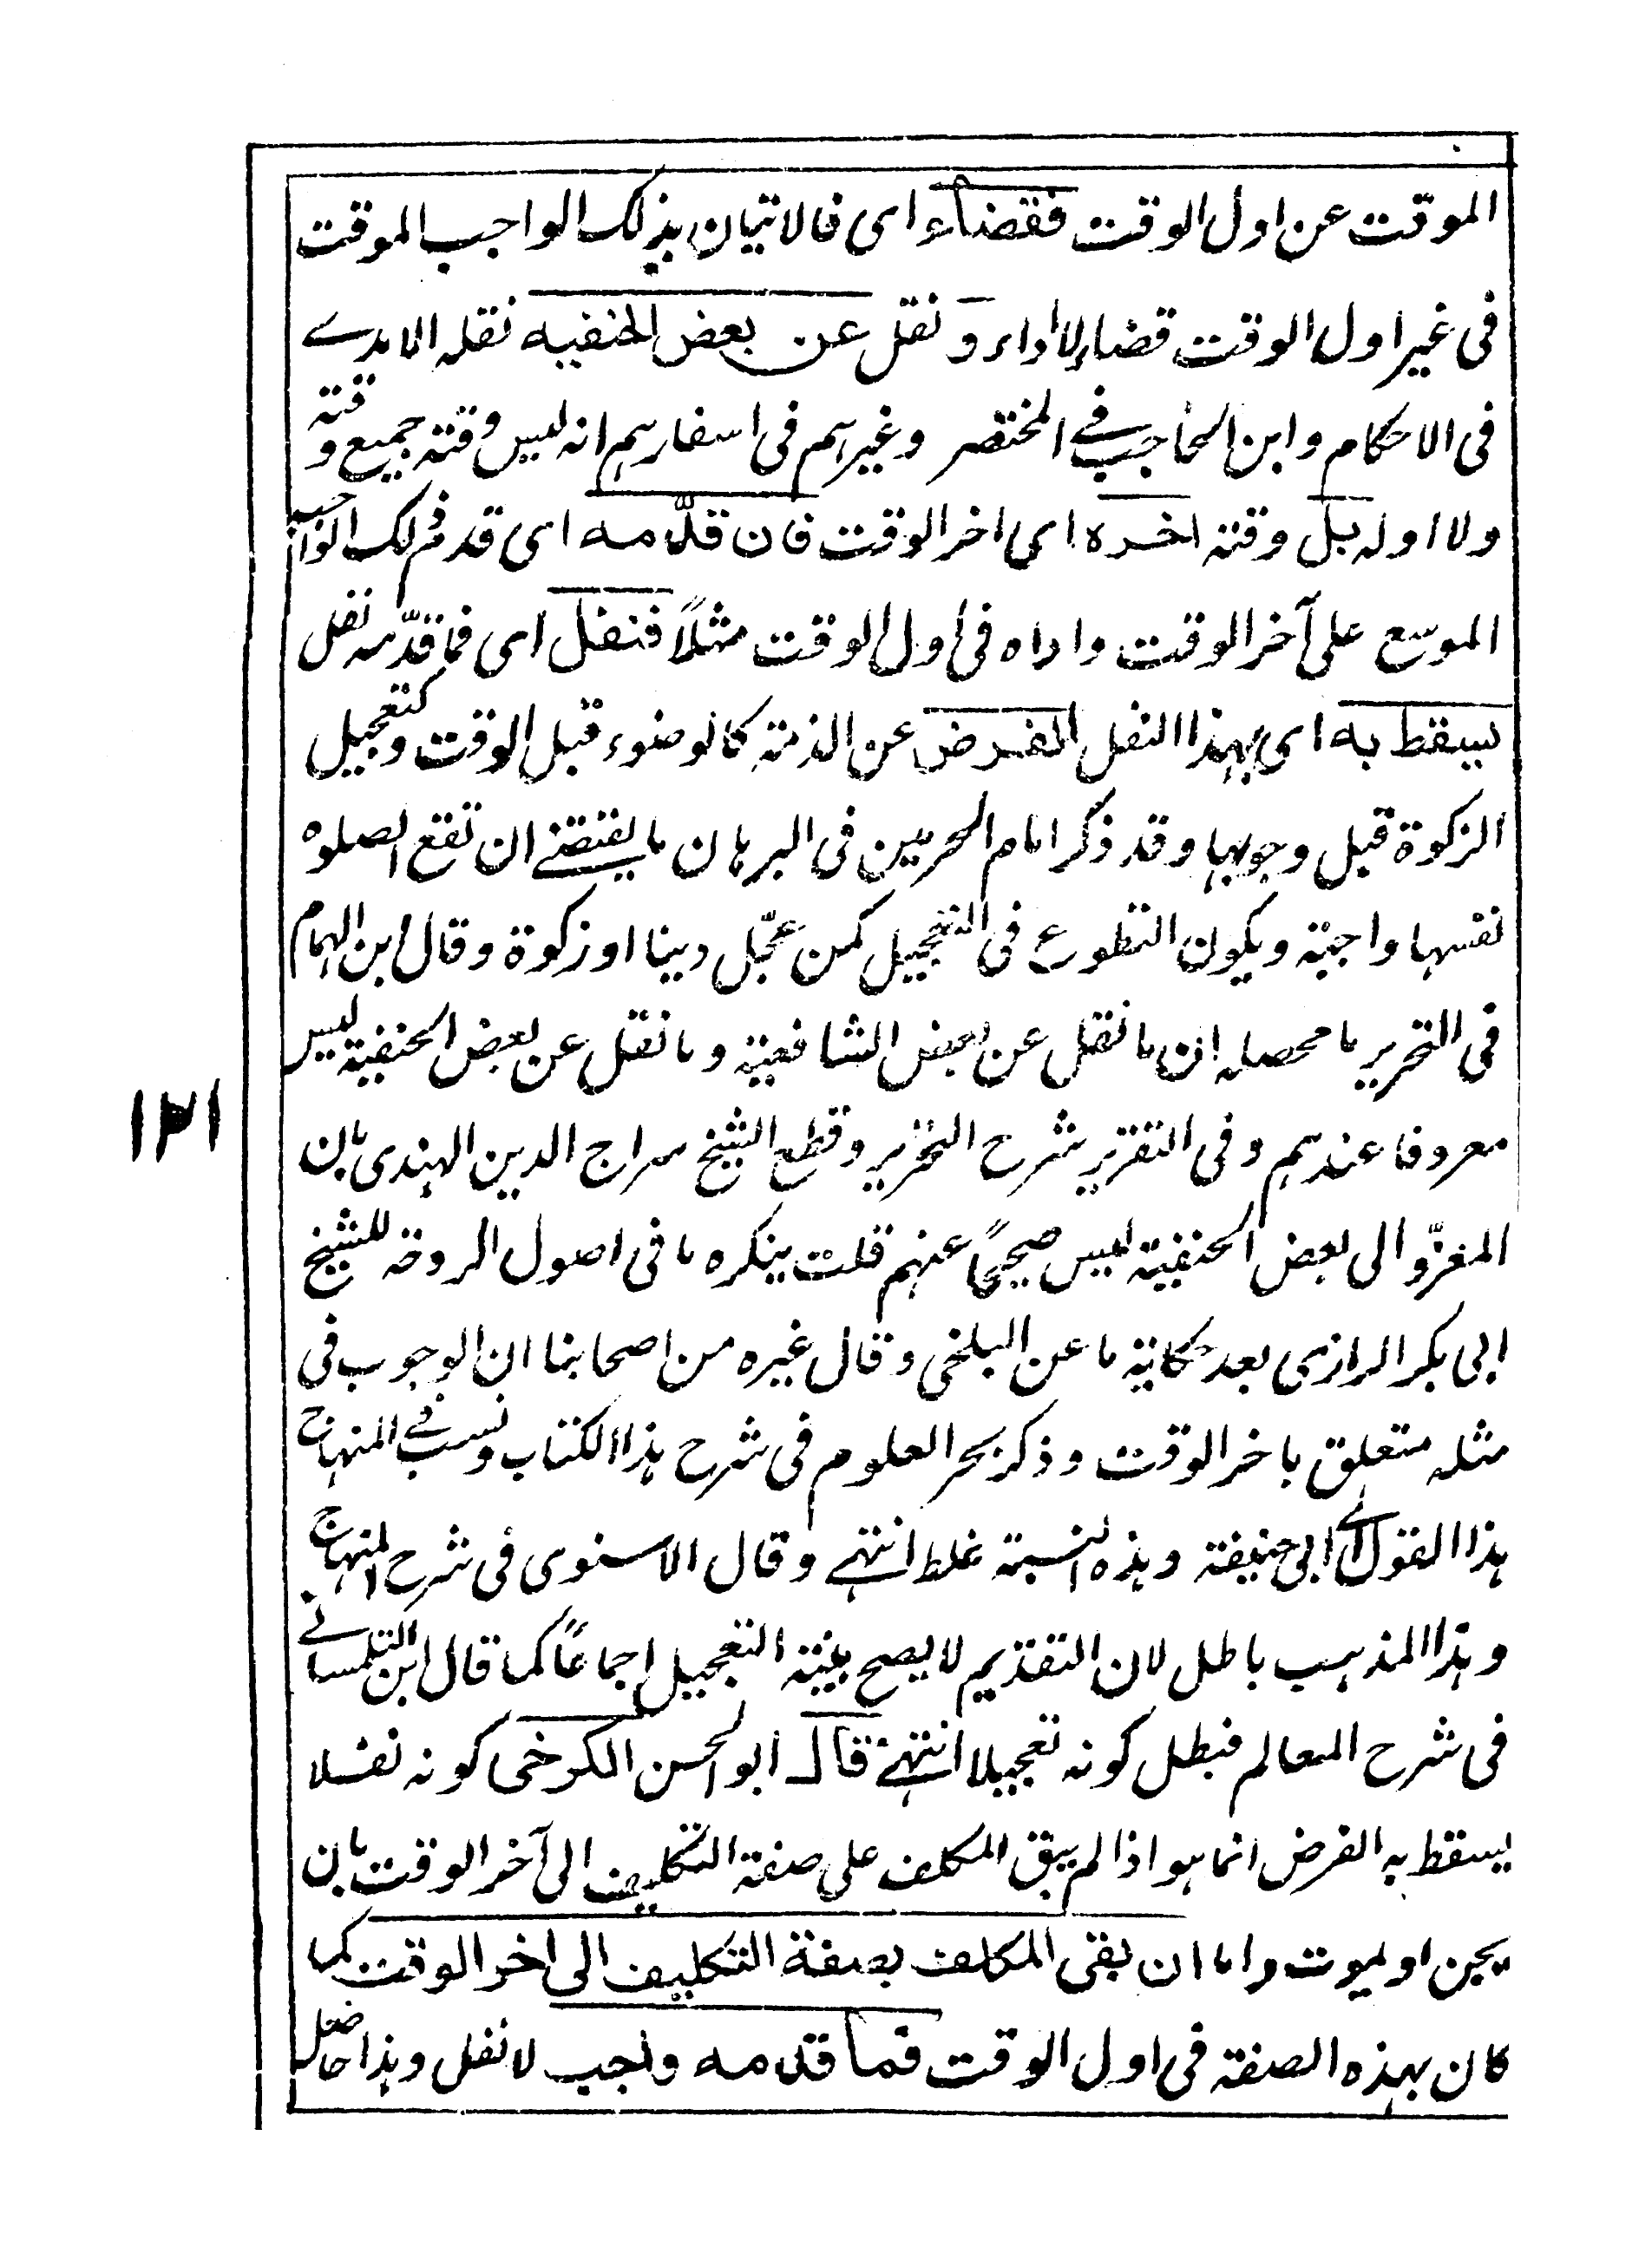 الموقت عن اول الوقت فقضاء اى فالاتيان بذلك الواجب الموقت
فى غير اول الوقت قضاء لا اداء و نقل عن بعض الحنفيه نقله الامدے
فى الاحكام وابن الحاجب فے المختصر وغيرهم فى اسفارهم انه ليس وقته جميع وقته
ولا اوله بل وقته اخره اى اخر الوقت فان قدّمه اى قدم ذلك الواجب
الموسع على آخر الوقت واداه فى اول الوقت مثلاً فنفل اى فما قدّمه نفل
يسقط به اى بهذا النفل الفرض عن الذمة كالوضوء قبل الوقت وكتعجيل
الزكوة قبل وجوبها وقد ذكر امام الحرمين فى البرهان ما يقتضے ان تقع الصلوه
نفسها واجبة ويكون التطوع فى التعجيل كمن عجّل دينا او زكوة وقال ابن الهمام
فى التحرير ما محصله ان ما نقل عن بعض الشافعية وما نقل عن بعض الحنفية ليس
معروفا عندهم وفى التقرير شرح التحرير وقطع الشيخ سراج الدين الهندى بان
المغزّو الى بعض الحنفية ليس صحيحًا عنهم قلت ينكره ما فى اصول الروقه للشيخ
ابى بكر الرازى بعد حكاية ما عن البلخى وقال غيره من اصحابنا ان الوجوب فى
مثله متعلق باخر الوقت وذكر بحر العلوم فى شرح هذا الكتاب ونسب فے المنهاج
هذا القول الے ابى حنيفة وهذه النسبة غلط انتهے وقال الاسنوى فى شرح المنهاج
وهذا المذهب باطل لان التقديم لا يصح بنية التعجيل اجماعًا كما قال ابن التلمسانے
فى شرح المعالم فبطل كونه تعجيلا انتهے قال ابو الحسن الكرخى كونه نفلا
يسقط به الفرض انما هو اذا لم يبق المكلف على صفة التكليف الى آخر الوقت بان
يجن او يموت واما ان بقى المكلف بصفة التكليف الى اخر الوقت كما
كان بهذه الصفة فى اول الوقت فما قدمه واجب لا نفل وهذا حاصل
١٢١